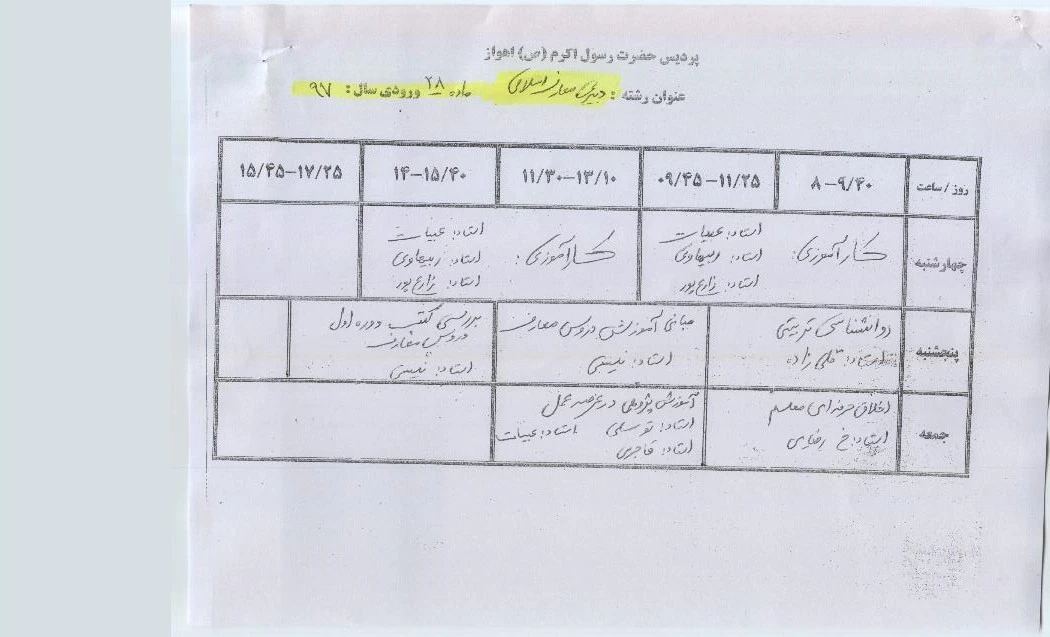 پردیس حضرت رسول اکرم (ص) اهواز
عنوان رشته : دبیری معارف اسلامی ماده ۲۸ ورودی سال : ۹۷
روز / ساعت ۸-۹/۴۰ ۰۹/۴۵-۱۱/۲۵ ۱۱/۳۰-۱۳/۱۰ ۱۴-۱۵/۴۰ ۱۵/۴۵-۱۷/۲۵
چهارشنبه
کارآموزی:
استاد: عبیات
استاد: ربیعاوی
استاد: زارع پور
کارآموزی:
استاد: عبیات
استاد: ربیعاوی
استاد: زارع پور
پنجشنبه
روانشناسی تربیتی
استاد: قلی زاده
مبانی آموزش دروس معارف
استاد: نیسی
بررسی کتب دوره اول
دروس معارف
استاد: نیسی
جمعه
اخلاق حرفه ای معلم
استاد: خ رضایی
آموزش پژوهی در عرصه عمل
استاد: توسلی استاد: عبیات
استاد: